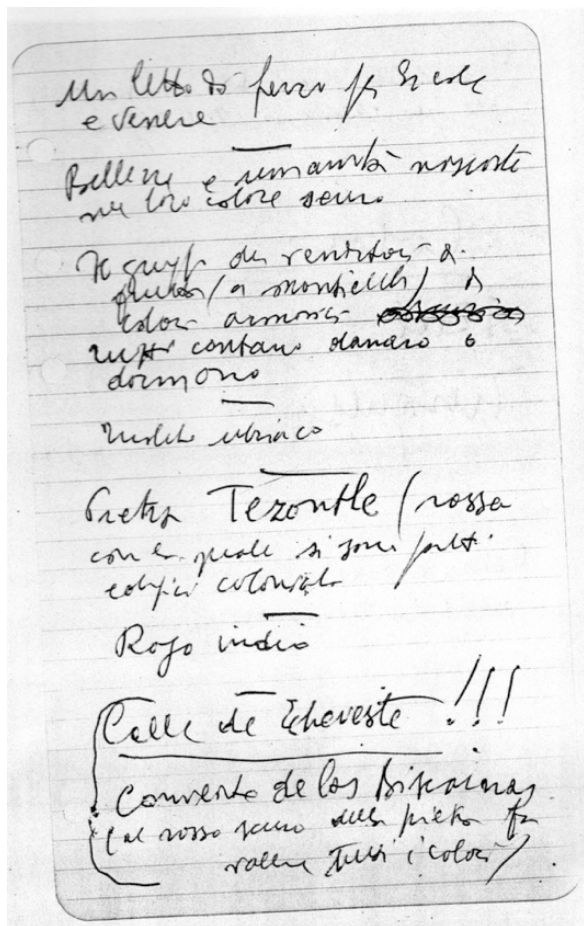 Un letto di ferro per Ercole
e Venere
Bellezza e umanità nascoste
nel loro colore scuro
di
colori armonici
tutti contano danaro o
dormono
ubriaco
Pietra Tezontle (rossa
con la quale si sono fatti
edifici coloniali
Rojo indio
Calle de Echeveste !!!
Convento de las Biscainas
(al rosso scuro della pietra fa
tutti i colori)